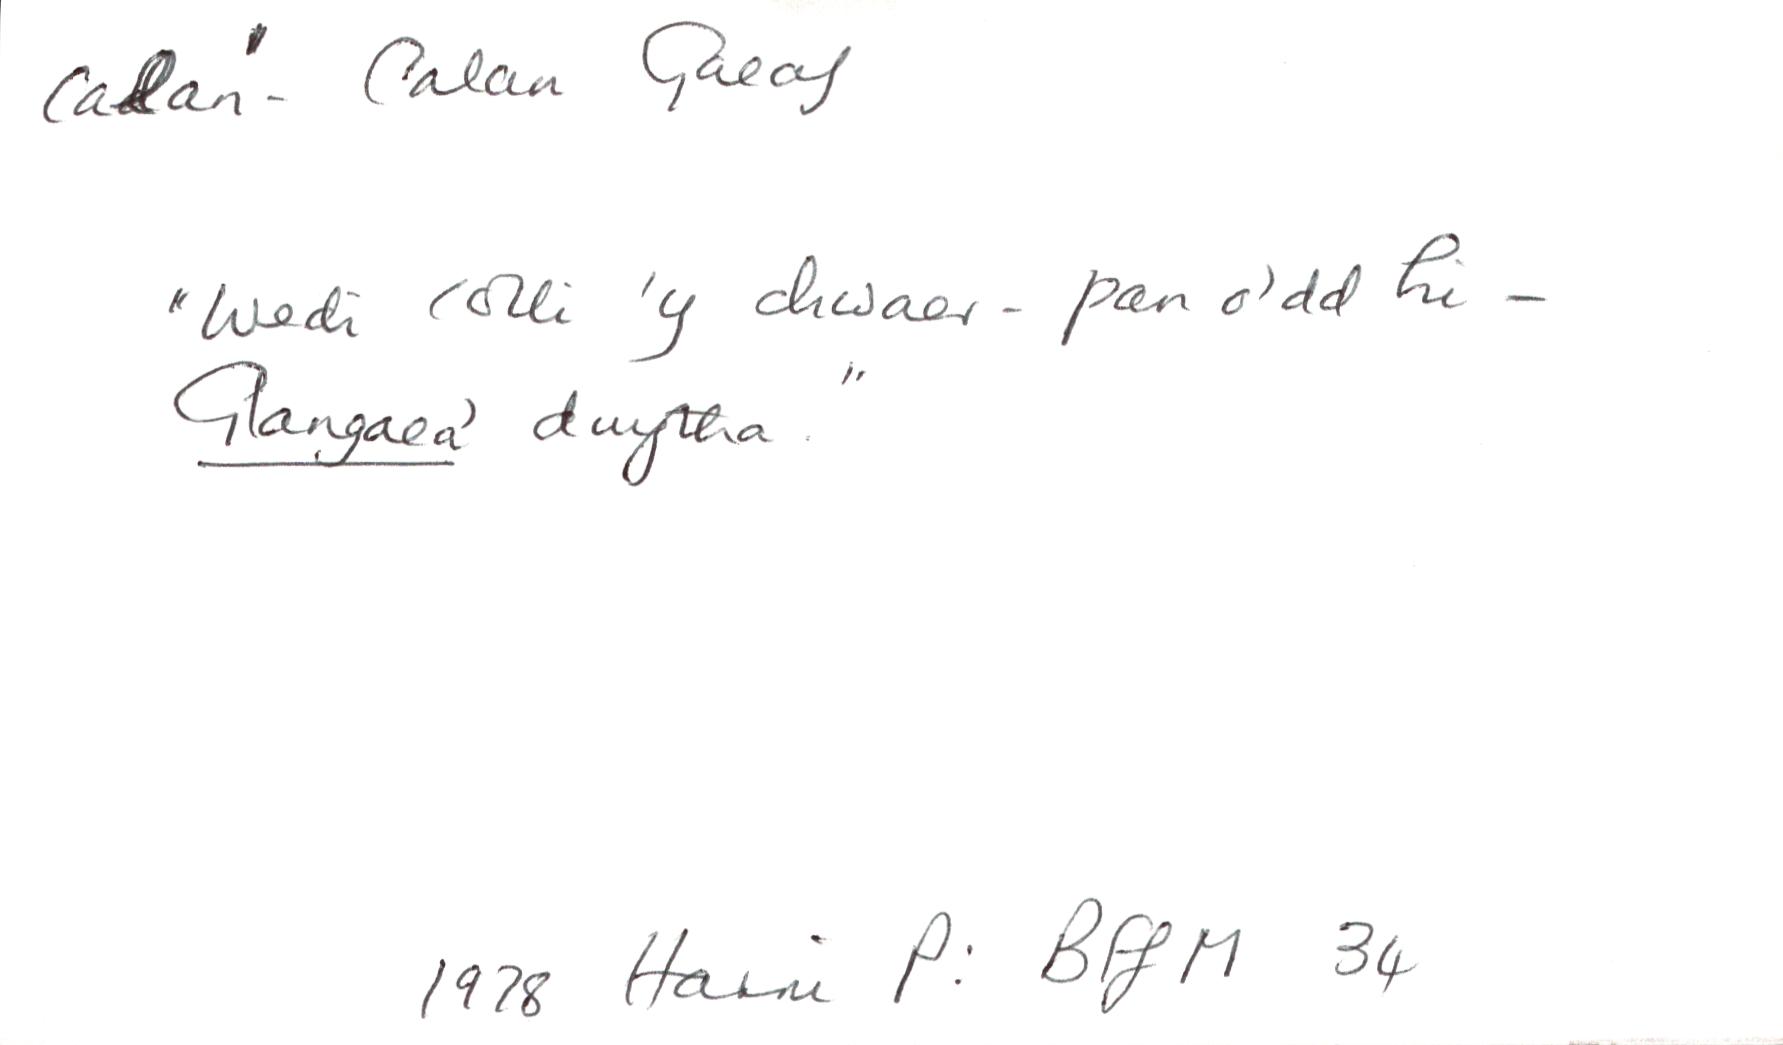 Calan" - Calan Gaeaf
"Wedi colli 'y chwaer - pan o'dd hi -
Glangaea' dwytha."
1978 Harri P: BFfM 34